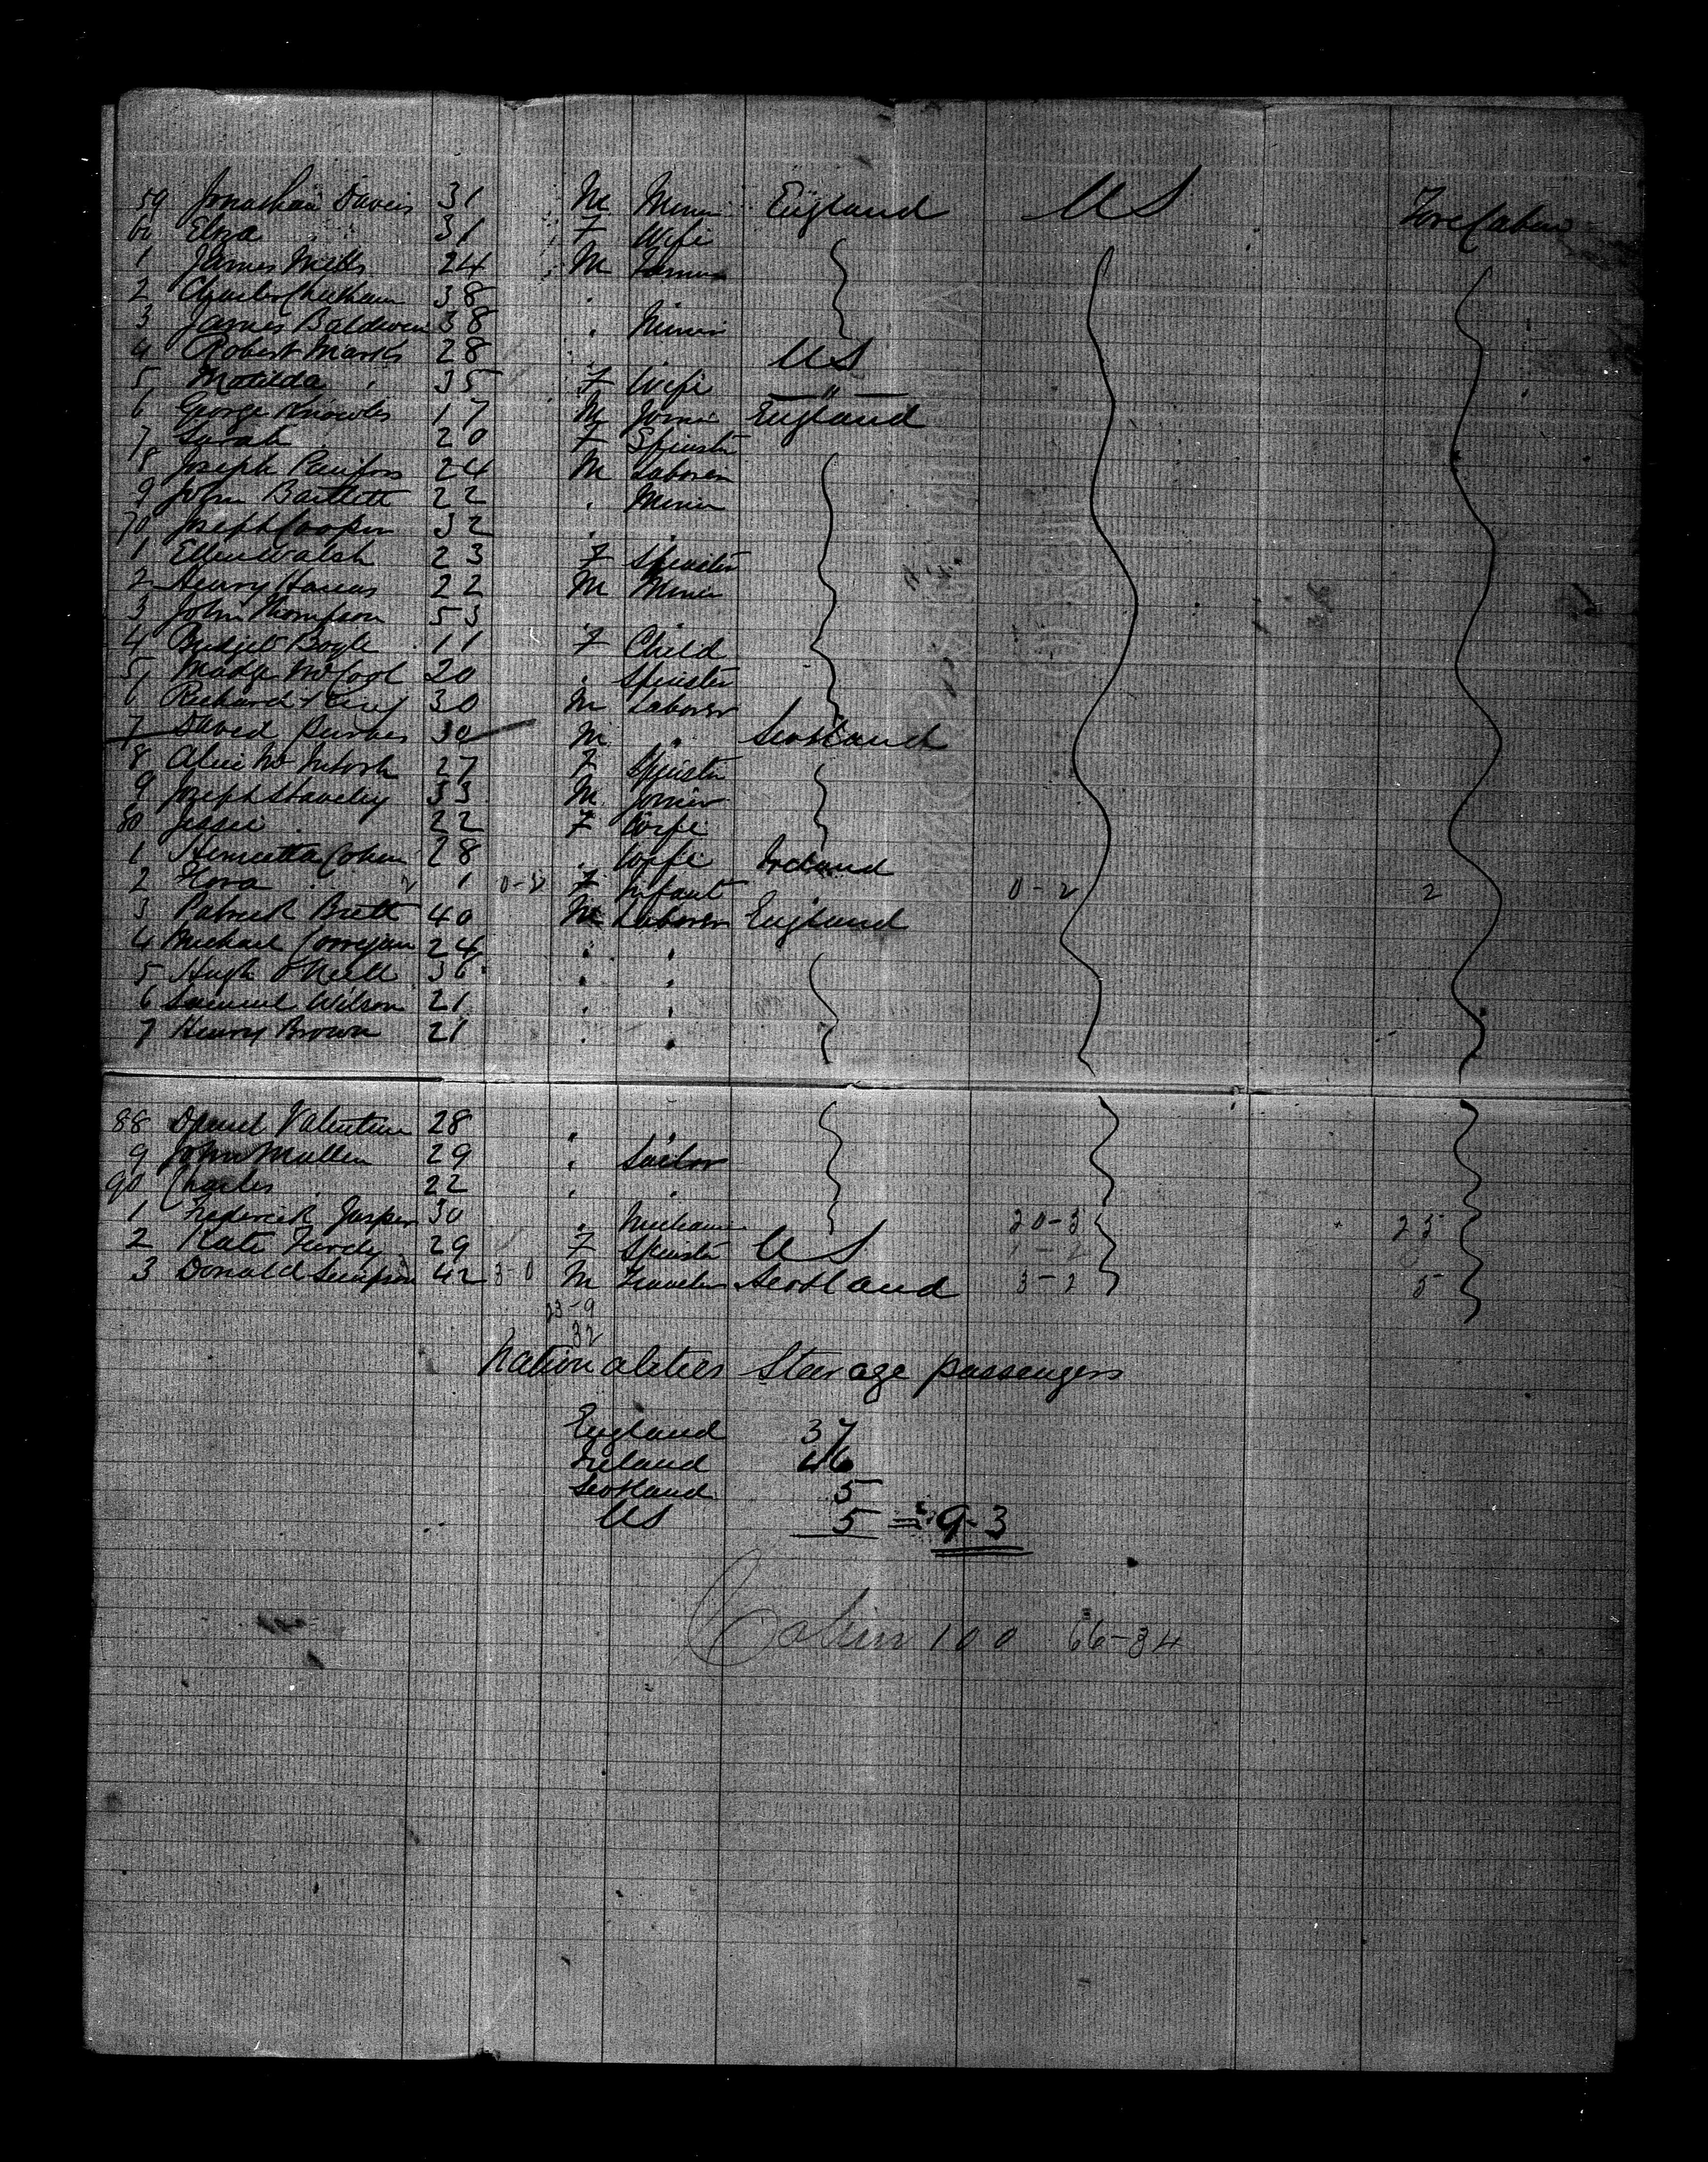 59 Jonathan Davis 31 M Miner England US Fore Cabin
60 Eliza " 31 F Wife
1 James Mills 24 M
2 Charles Cheetham 38 "
3 James Baldwin 38 " Miner
4 Robert Marks 28 " US
5 Matilda " 35 F Wife "
6 George Knowles 17 M Joiner England
7 Sarah " 20 F Spinster
8 Joseph 24 M Laborer
9 John Bartlett 22 " Miner
70 Joseph Cooper 32 " "
1 Ellen Walsh 23 F Spinster
2 Henry 22 M Miner
3 John Thompson 53 " "
4 Bridget Boyle 11 F Child
5 Madge McCool 20 " Spinster
6 Richard 30 M Laborer
7 David 30 M " Scotland
8 Alice McIntosh 27 F Spinster
9 Joseph Staveley 33 M Joiner
80 Jessie " 22 F Wife
1 Henrietta Cohen 28 " Wife Ireland
2 Flora " 2 1 F Infant 0-2 2
3 Patrick Brett 40 M Laborer England
4 Michael Corrigan 24 " "
5 Hugh O'Neill 36 " "
6 Samuel Wilson 21 " "
7 Henry Brown 21 " "
88 Daniel Valentine 28 " "
9 John Mullen 29 " Sailor
90 Charles " 22 " "
1 Frederick Jasper 30 " 20-3 23
2 Kate 29 F Spinster US
3 Donald Simpson 42 3-0 M Traveler Scotland 3-2 5
23-9
32
Nationalities Steerage passengers
England 37
Ireland 46
Scotland 5
US 5 = 93
Cabin 100 66-34